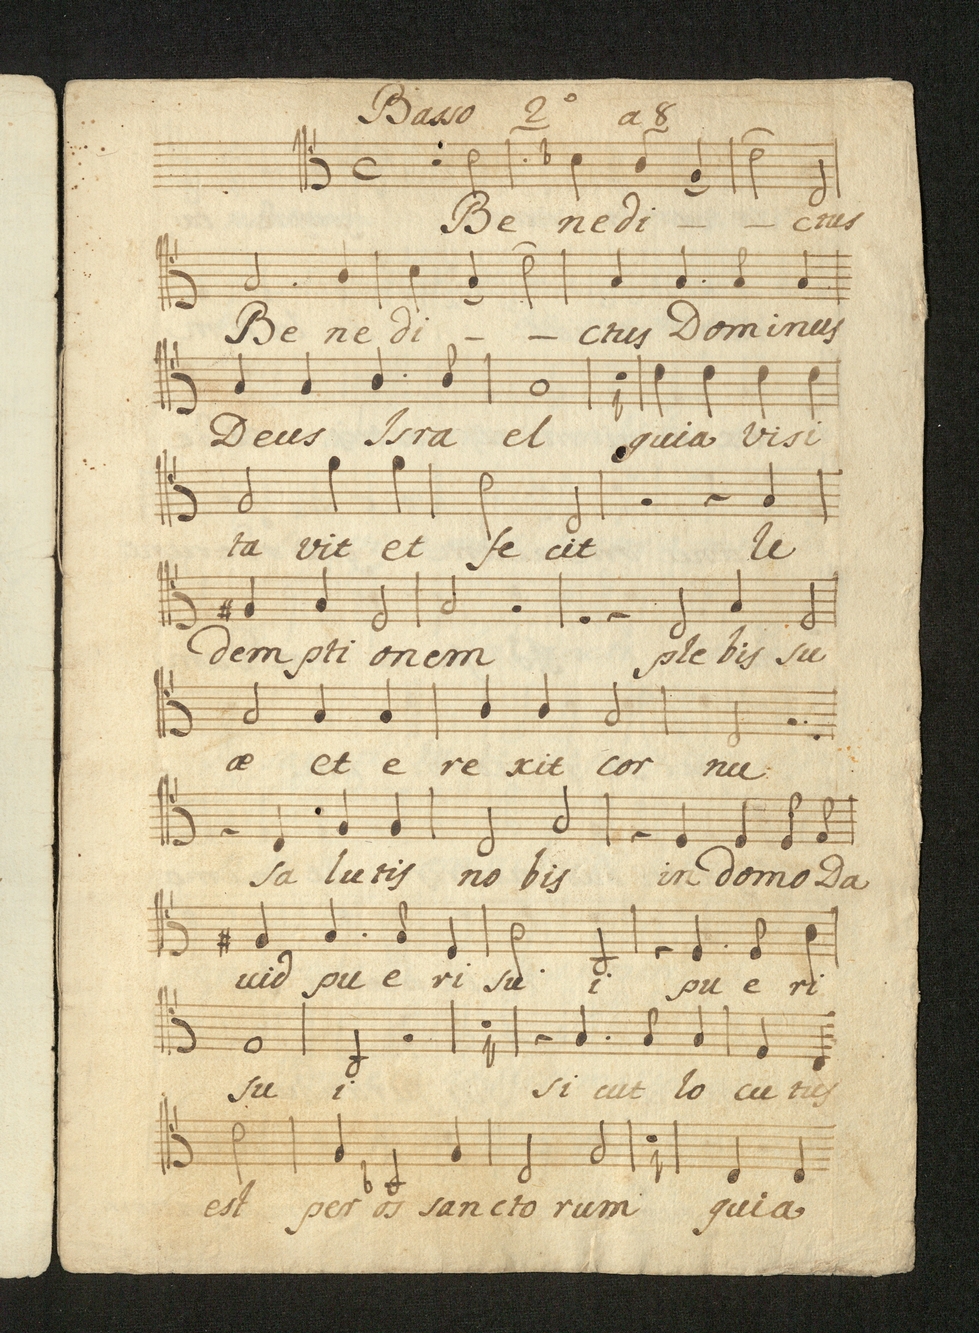 Basso 2° a 8
Be nedi - - ctus
Be ne di - - ctus Dominus
Deus Isra el quia visi
ta vit et fe cit le
dem pti onem ple bis su
æ et e re xit cor nu
sa lu tis no bis in domo Da
uid pu e ri su i pu e ri
su i si cut lo cu tus
est per os san cto rum quia